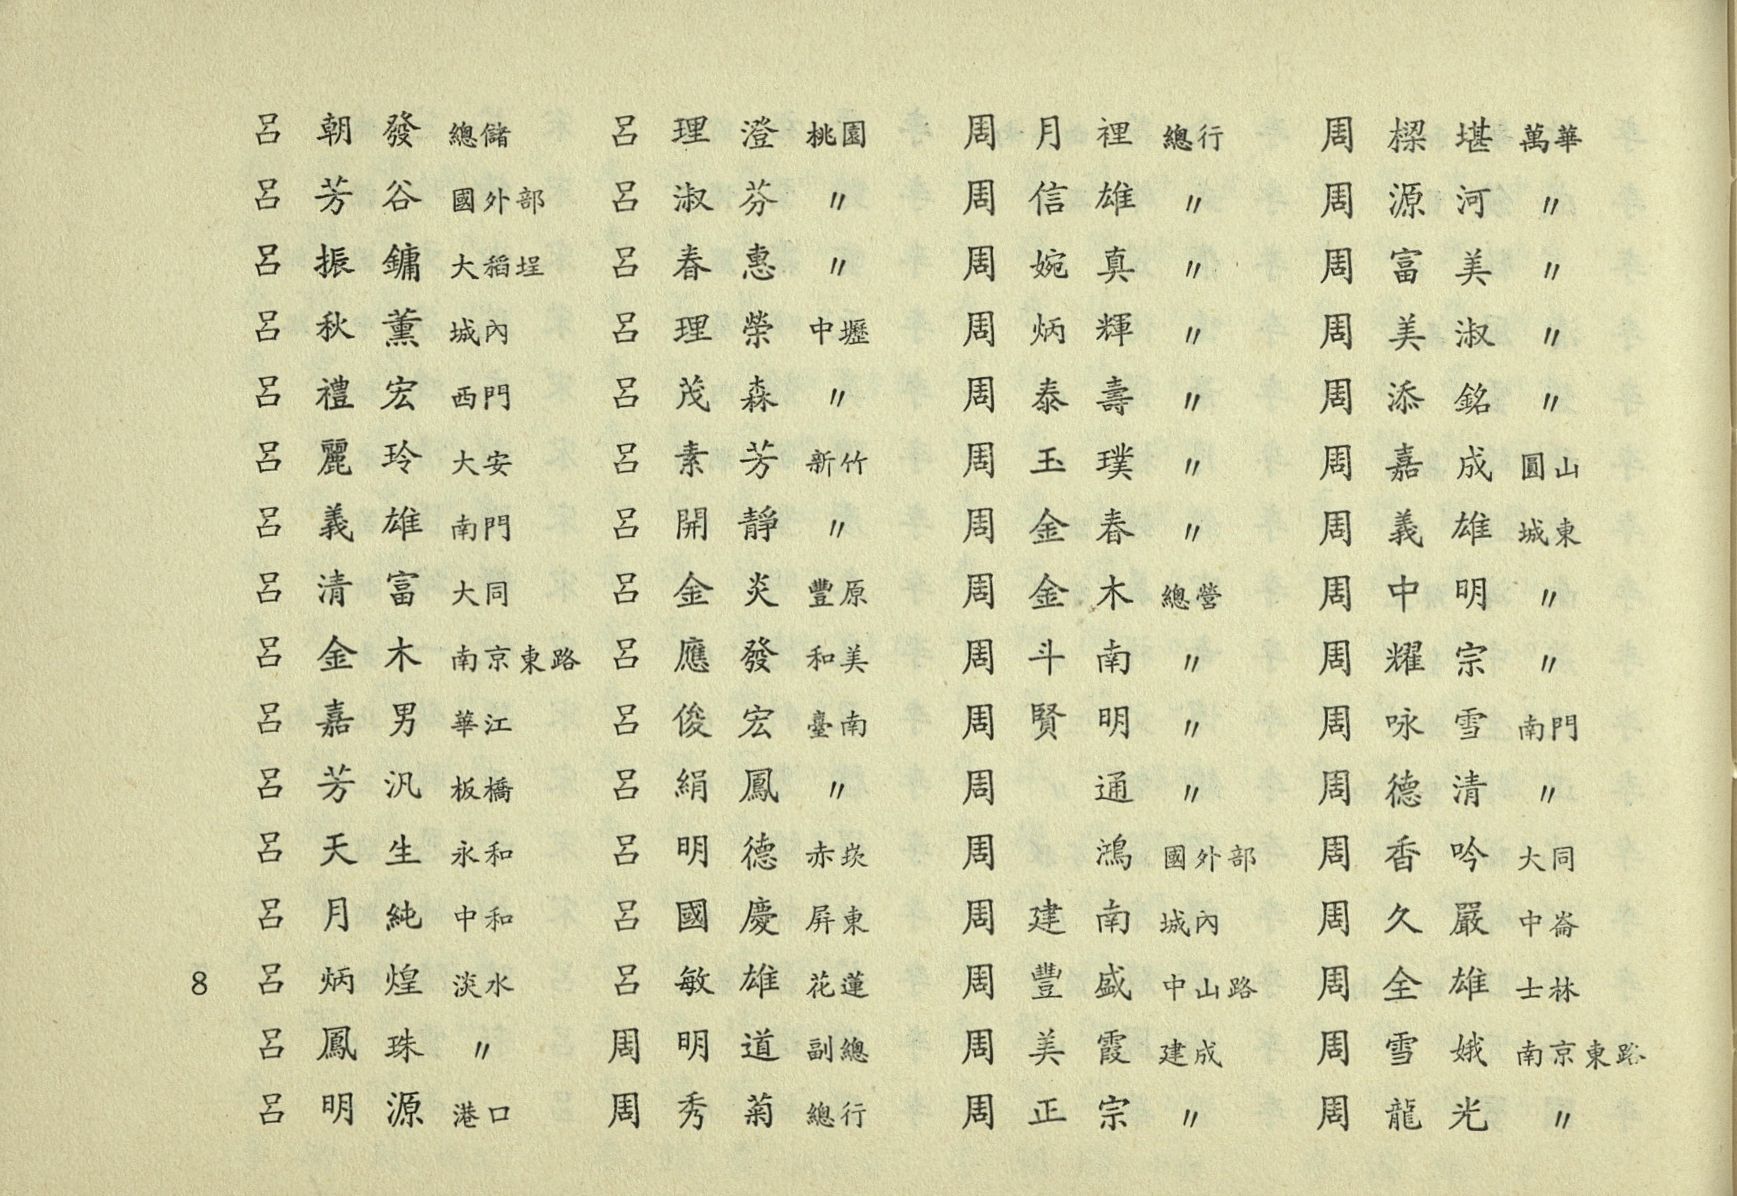 呂朝發 總儲 呂理澄 桃園 周月裡 總行 周樑堪 萬華
呂芳谷 國外部 呂淑芬 〃 周信雄 〃 周源河 〃
呂振鏞 大稻埕 呂春惠 〃 周婉真 〃 周富美 〃
呂秋薰 城內 呂理榮 中壢 周炳輝 〃 周美淑 〃
呂禮宏 西門 呂茂森 〃 周泰壽 〃 周添銘 〃
呂麗玲 大安 呂素芳 新竹 周玉璞 〃 周嘉成 圓山
呂義雄 南門 呂開靜 〃 周金春 〃 周義雄 城東
呂清富 大同 呂金炎 豐原 周金木 總營 周中明 〃
呂金木 南京東路 呂應發 和美 周斗南 〃 周耀宗 〃
呂嘉男 華江 呂俊宏 臺南 周賢明 〃 周咏雪 南門
呂芳汎 板橋 呂絹鳳 〃 周通 〃 周德清 〃
呂天生 永和 呂明德 赤崁 周鴻 國外部 周香吟 大同
呂月純 中和 呂國慶 屏東 周建南 城內 周久嚴 中崙
8 呂炳煌 淡水 呂敏雄 花蓮 周豐盛 中山路 周全雄 士林
呂鳳珠 〃 周明道 副總 周美霞 建成 周雪娥 南京東路
呂明源 港口 周秀菊 總行 周正宗 〃 周龍光 〃